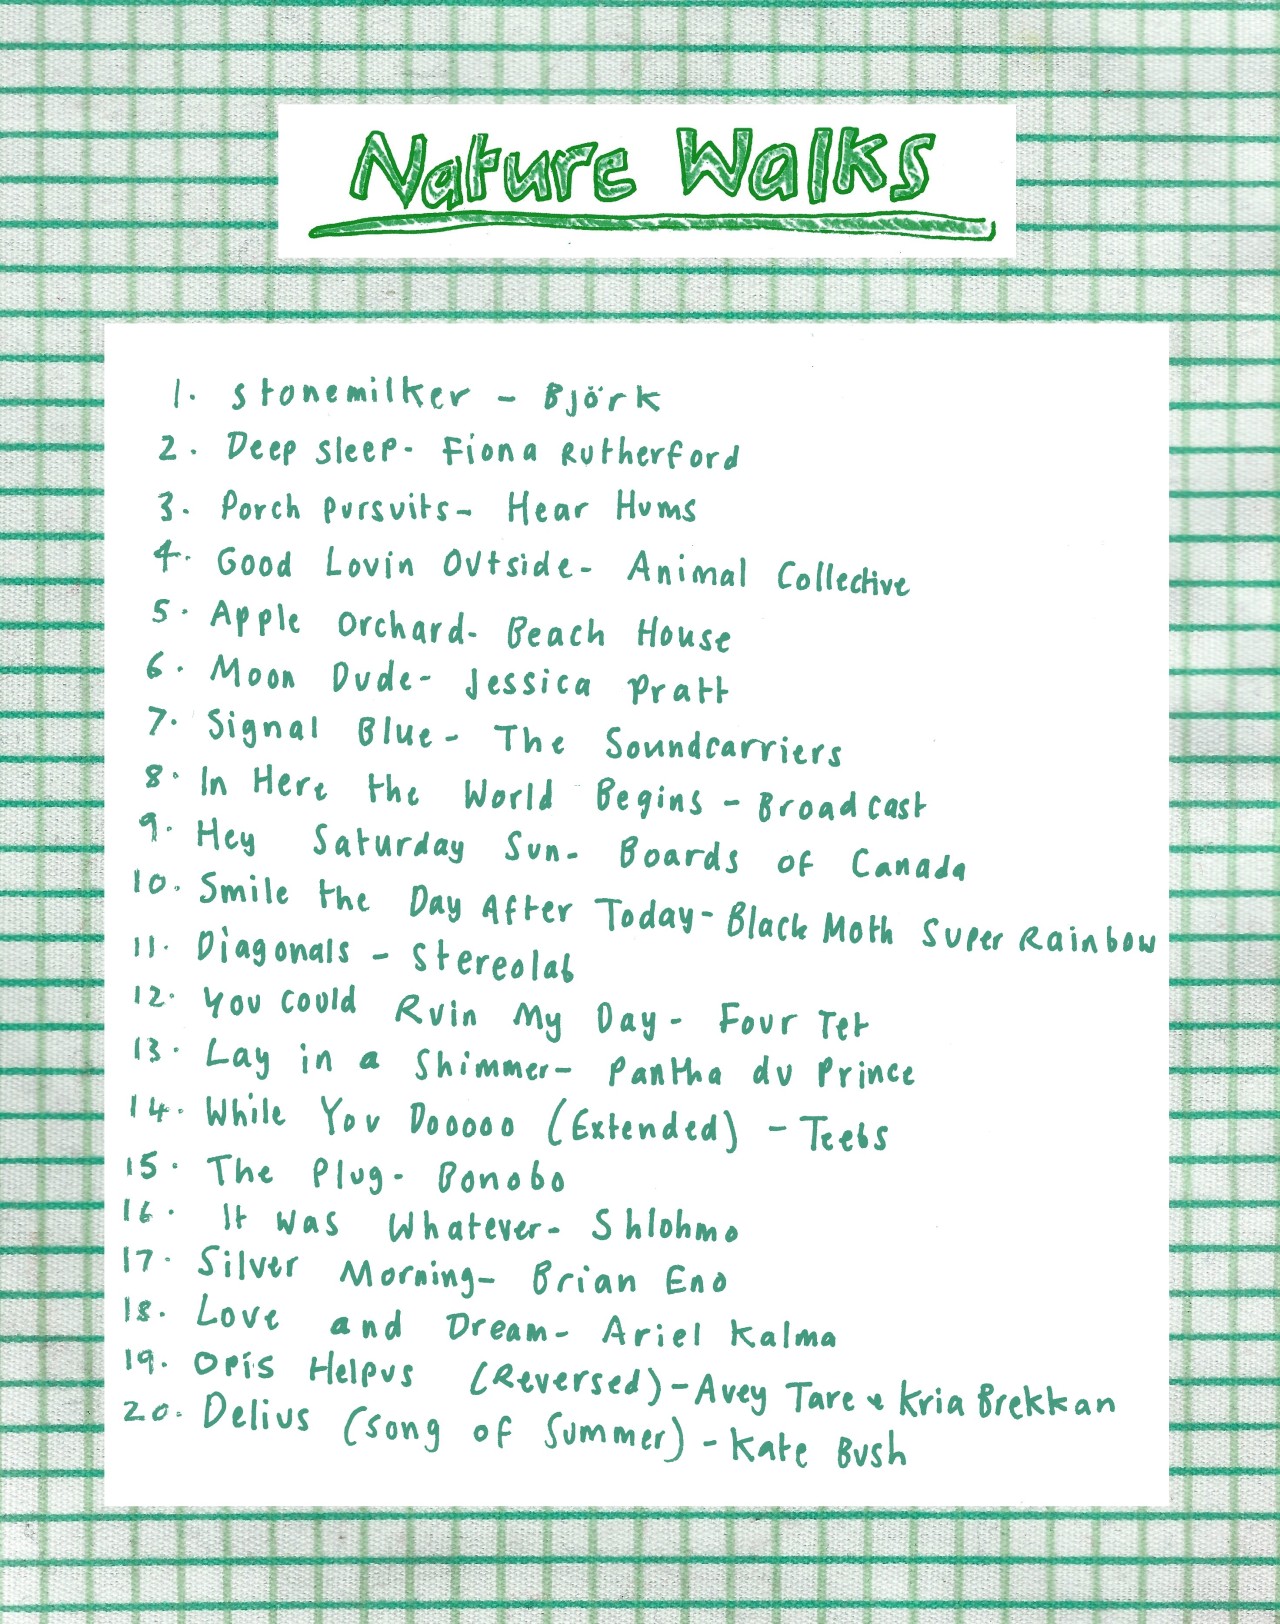 Nature Walks
1. Stonemilker - Björk
2. Deep Sleep - Fiona Rutherford
3. Porch Pursuits - Hear Hums
4. Good Lovin Outside - Animal Collective
5. Apple Orchard - Beach House
6. Moon Dude - Jessica Pratt
7. Signal Blue - The Soundcarriers
8. In Here the World Begins - Broadcast
9. Hey Saturday Sun - Boards of Canada
10. Smile the Day After Today - Black Moth Super Rainbow
11. Diagonals - Stereolab
12. You Could Ruin My Day - Four Tet
13. Lay in a Shimmer - Pantha du Prince
14. While You Dooooo (Extended) - Teebs
15. The Plug - Bonobo
16. It Was Whatever - Shlohmo
17. Silver Morning - Brian Eno
18. Love and Dream - Ariel Kalma
19. Opís Helpus (Reversed) - Avey Tare & Kria Brekkan
20. Delius (Song of Summer) - Kate Bush